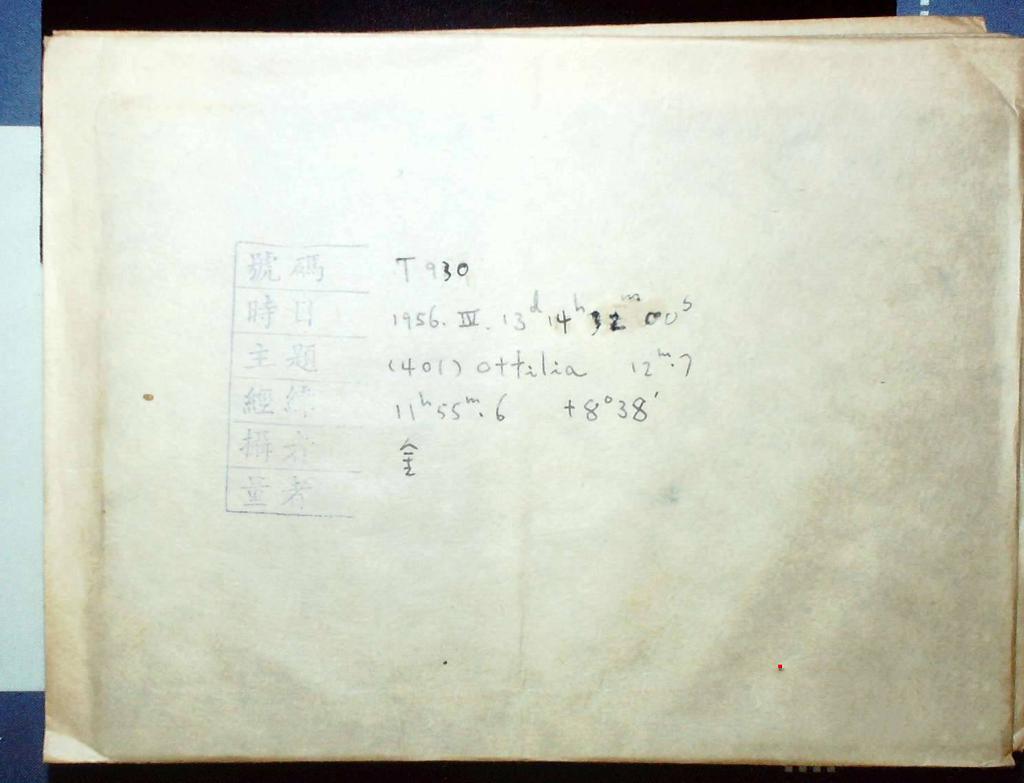 號碼 T 930
時日 1956. IV. 13ᵈ 14ʰ 32ᵐ 00ˢ
主題 (401) Ottilia 12ᵐ.7
經緯 11ʰ 55ᵐ.6 +8°38′
攝者 金
量者